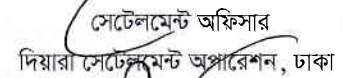 সেটেলমেন্ট অফিসার
দিয়ারা সেটেলমেন্ট অপারেশন, ঢাকা